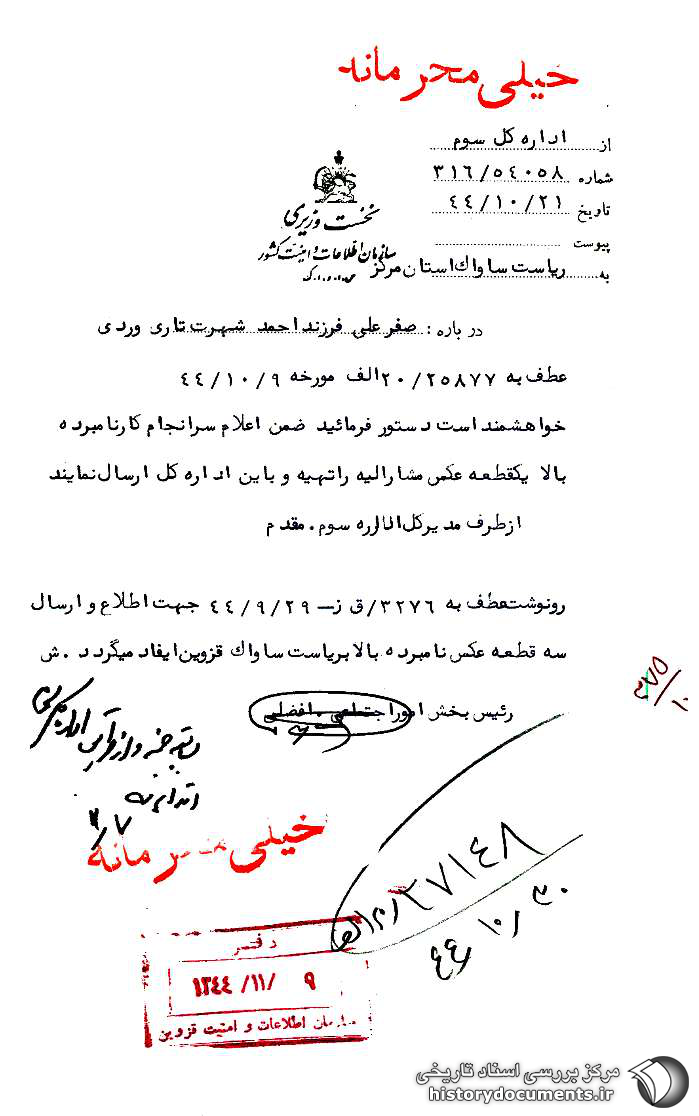 خیلی محرمانه
از اداره کل سوم
شماره ۳۱۶/۵۴۰۵۸
تاریخ ۴۴/۱۰/۲۱
پیوست
نخست وزیری
سازمان اطلاعات و امنیت کشور
س.ا.و.ا.ک
به ریاست ساواک استان مرکز
درباره: صفرعلی فرزند احمد شهرت تاری وردی
عطف به ۲۰/۲۵۸۷۷الف مورخه ۴۴/۱۰/۹
خواهشمند است دستور فرمائید ضمن اعلام سرانجام کار نامبرده
بالا یکقطعه عکس مشارالیه را تهیه و باین اداره کل ارسال نمایند
از طرف مدیرکل اداره سوم. مقدم
رونوشت عطف به ۳۲۷۶/ق ز- ۴۴/۹/۲۹ جهت اطلاع و ارسال
سه قطعه عکس نامبرده بالا بریاست ساواک قزوین ایفاد میگردد. ش
رئیس بخش امور اجتماعی. افضلی
خیلی محرمانه
۲۷۱۴۸/۲۰الف
۴۴/۱۰/۳۰
دفتر
۱۳۴۴/۱۱/ ۹
سازمان اطلاعات و امنیت قزوین
مرکز بررسی اسناد تاریخی
historydocuments.ir